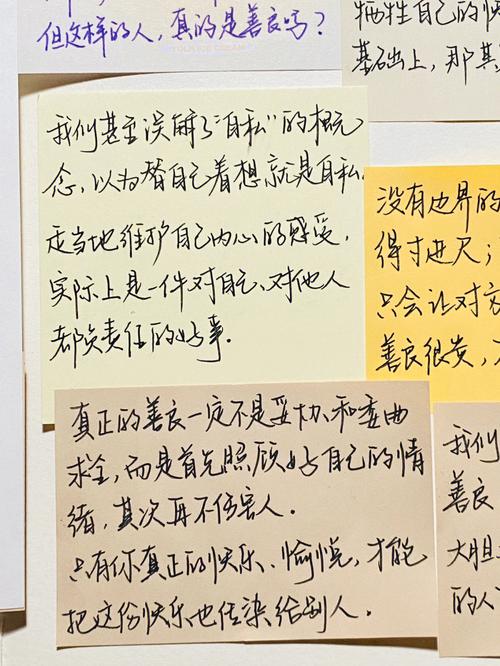 但这样的人，真的是善良吗？
牺牲自己的快
基础上，那其
我们甚至误解了“自私”的概
念，以为替自己着想就是自私。
适当地维护自己内心的感受，
实际上是一件对自己、对他人
都负责任的好事。
没有边界的
得寸进尺；
只会让对方
善良很贵，
真正的善良一定不是妥协和委曲
求全，而是首先照顾好自己的情
绪，其次再不伤害人。
只有你真正的快乐、愉悦，才能
把这份快乐也传染给别人。
我们
善良
大胆
的人